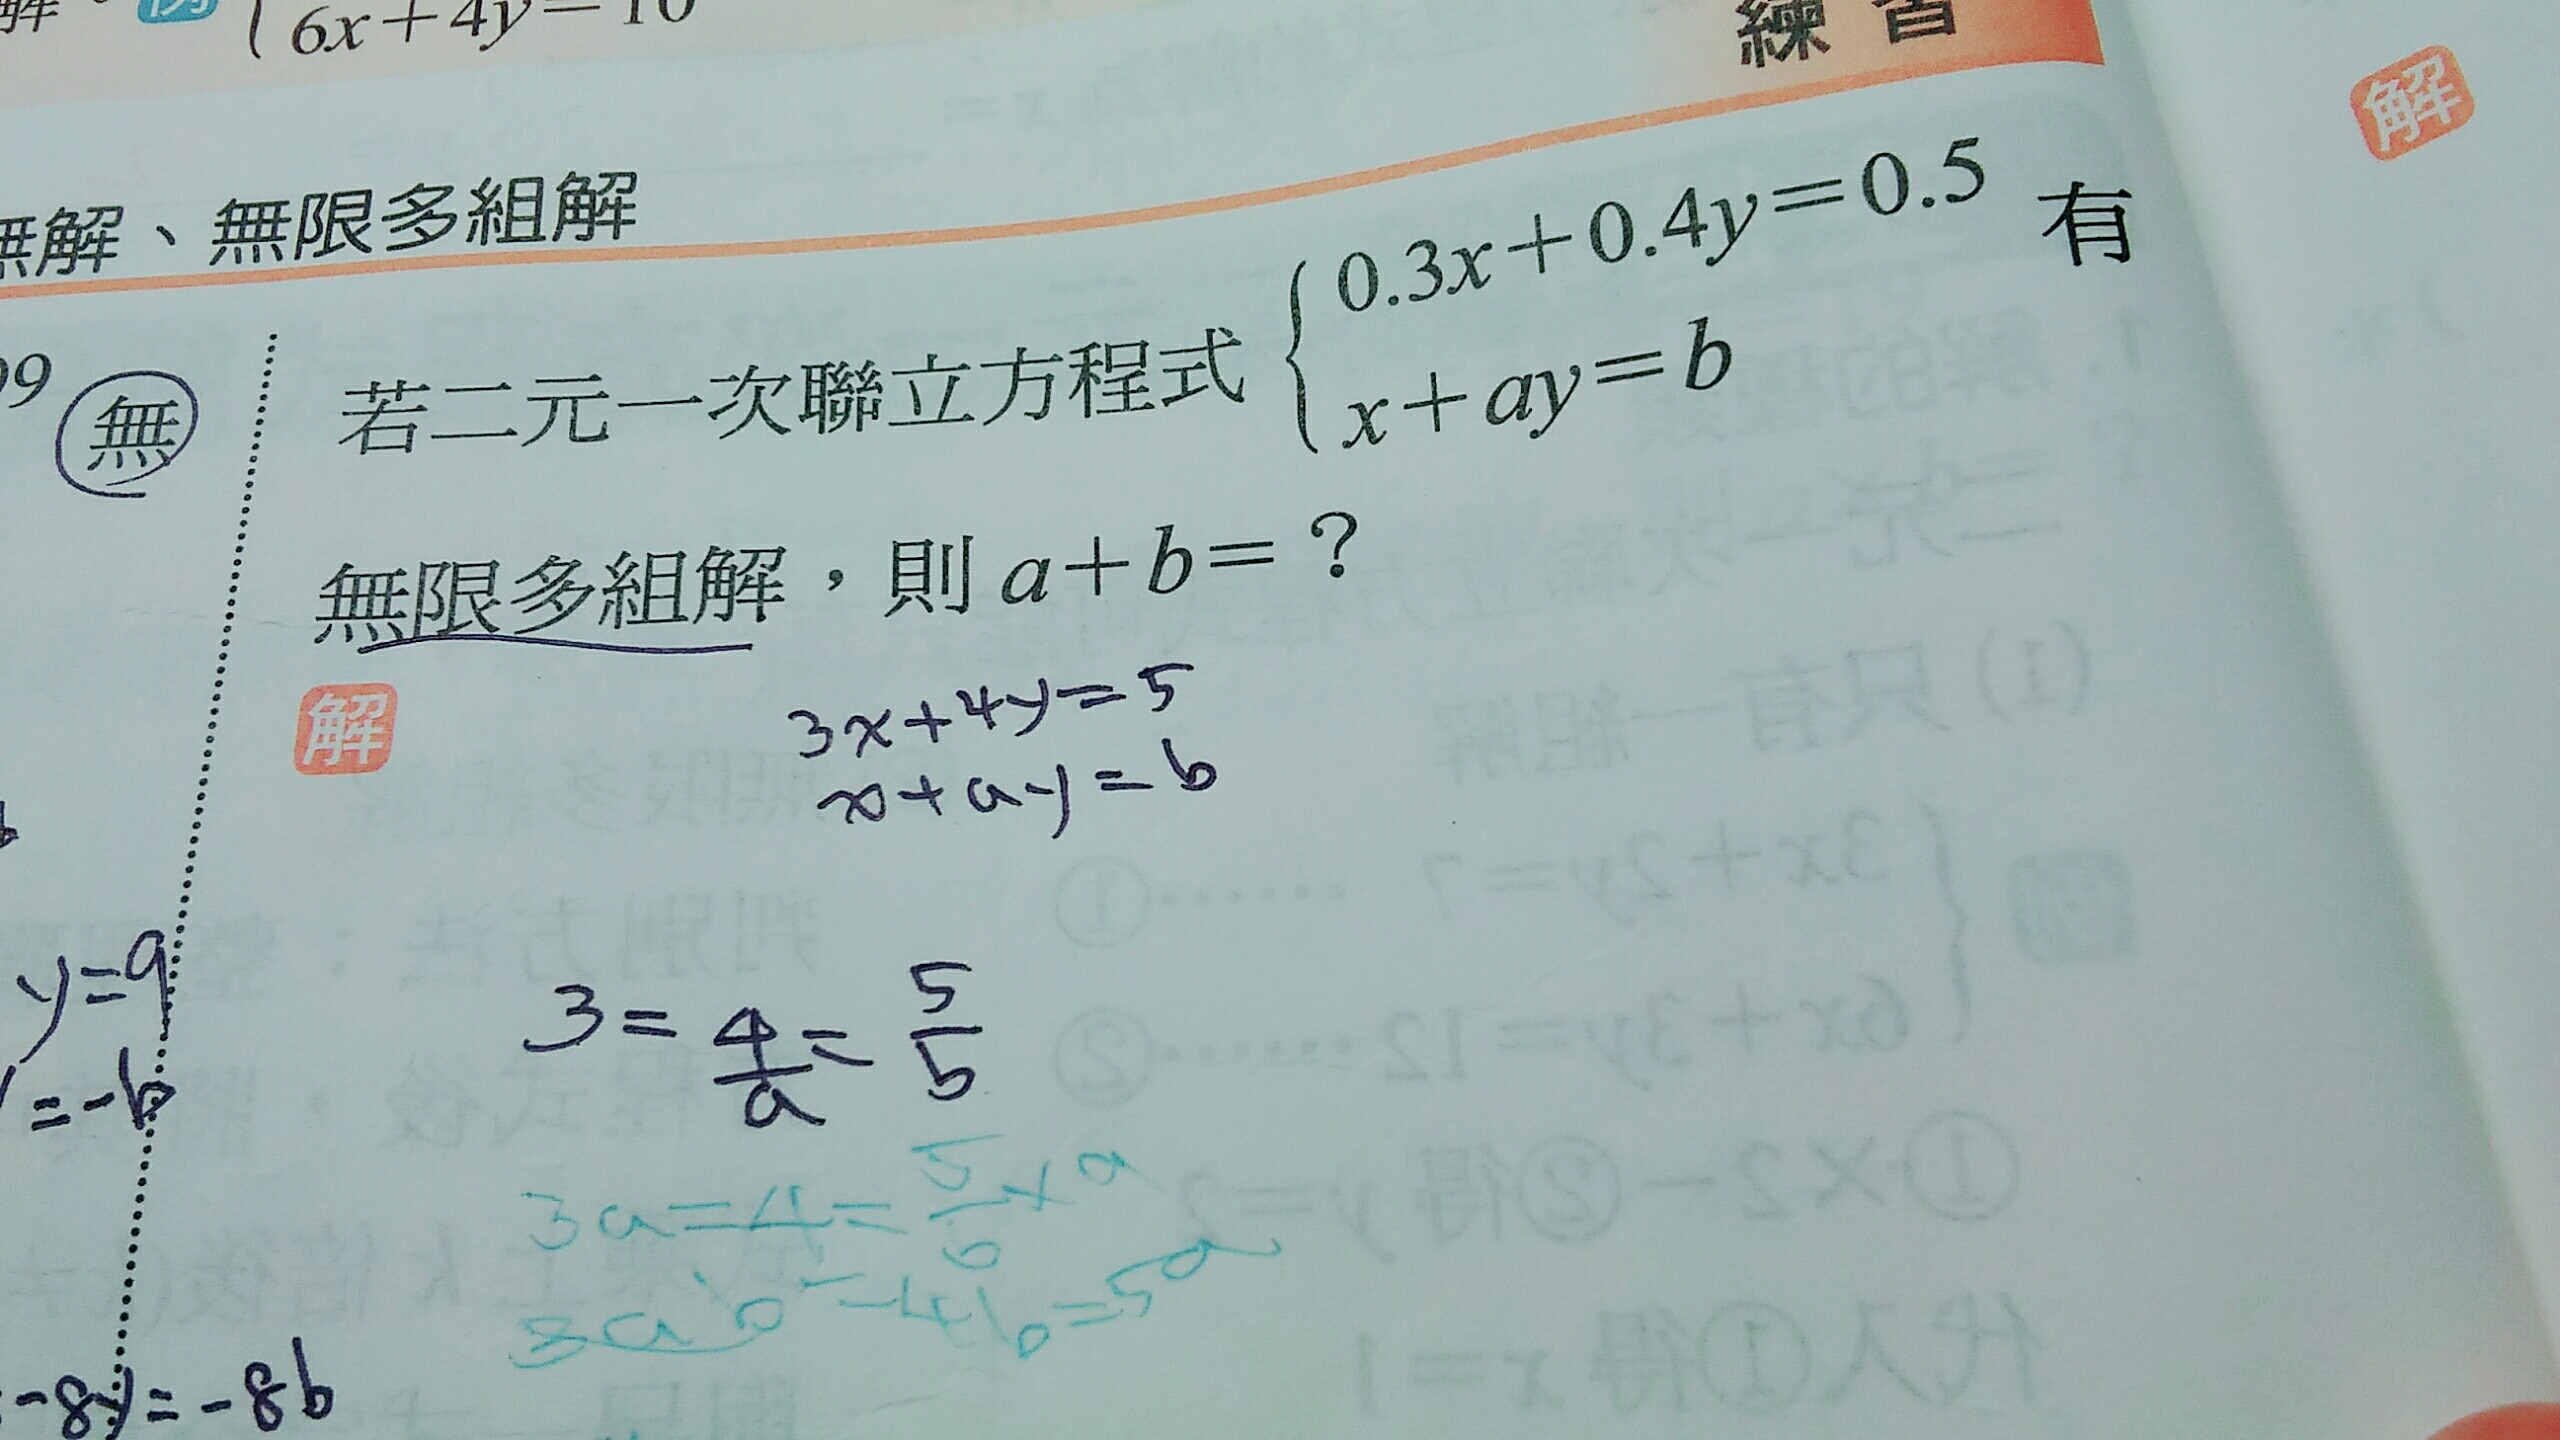 解。例 6x+4y=10
練習
解
無解、無限多組解
若二元一次聯立方程式 { 0.3x+0.4y=0.5 有
x+ay=b
99 無
無限多組解,則 a+b=?
解
3x+4y=5
x+ay=b
3=4/a=5/b
y=9
=-b
3a=4=5/b×a
3ab=4b=5a
-8y=-8b